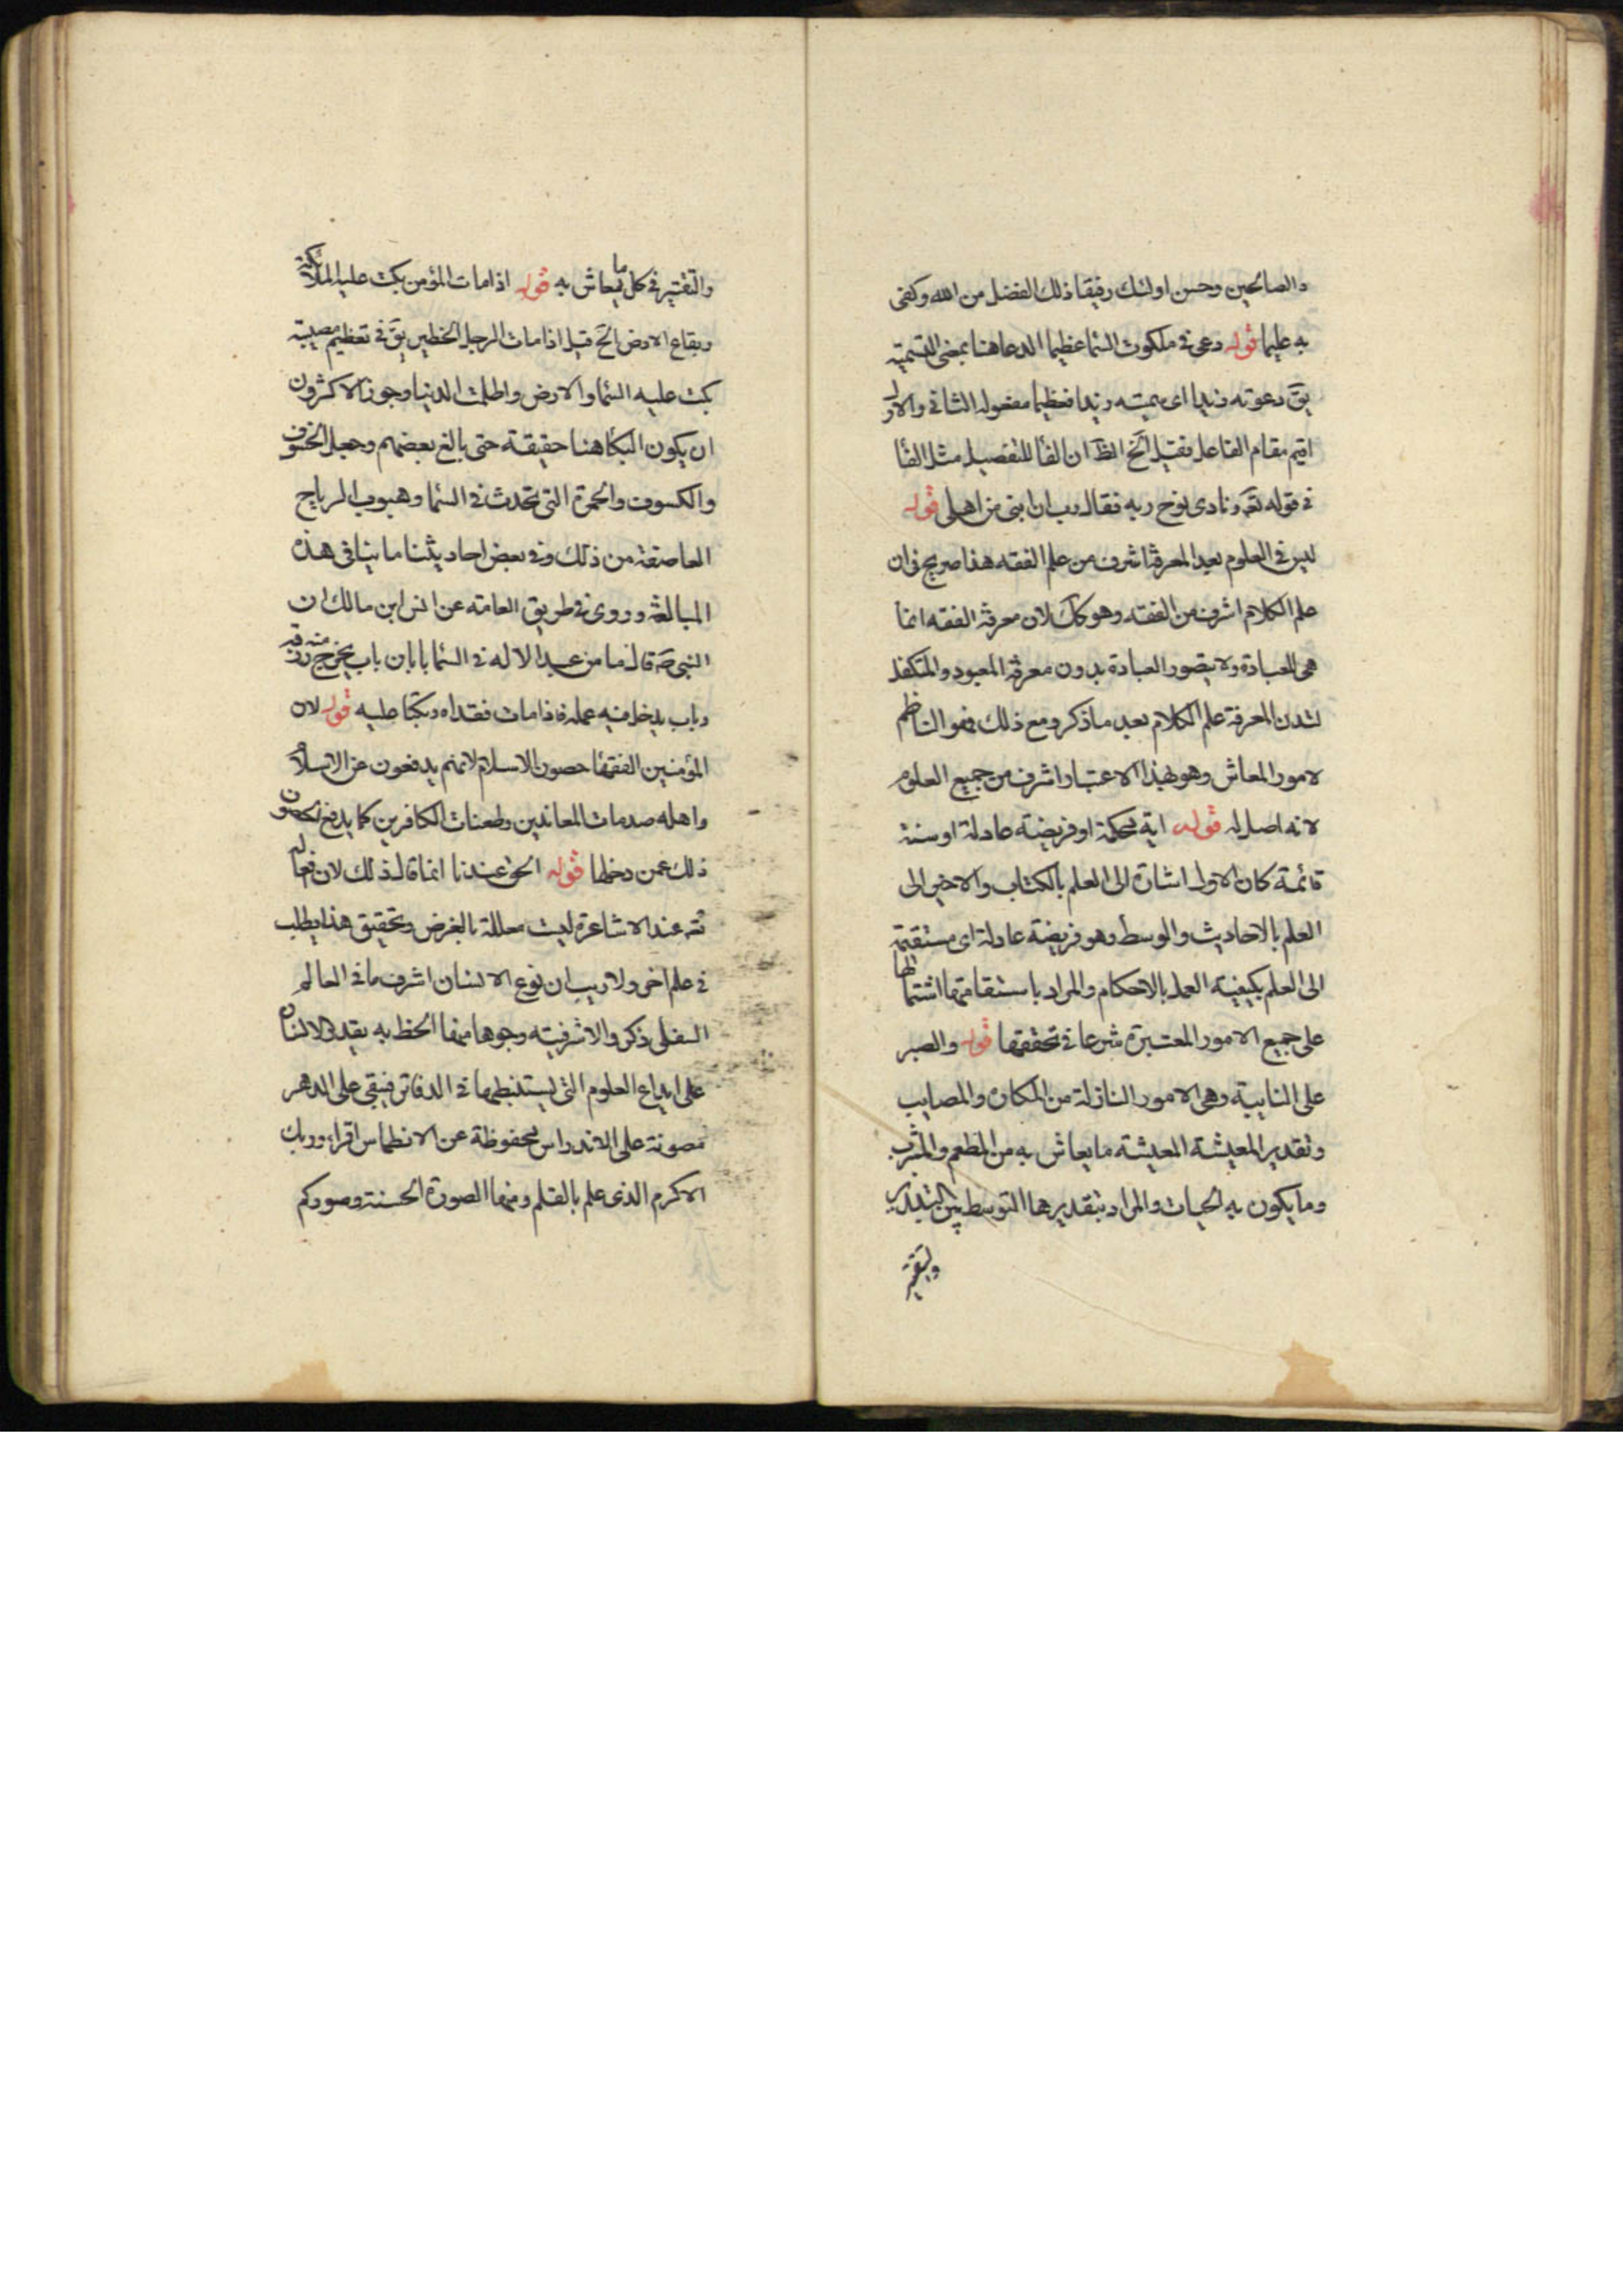 والصالحين وحسن اولئك رفيقا ذلك الفضل من الله وكفى
به عليما قوله دعى فى ملكوت السما عظيما الدعا هنا بمعنى التسمية
يق دعوته زيدا اى سميته زيدا فعظيما مفعوله الثانى والاول
اقيم مقام الفاعل فقيل الخ الظ ان الفا للتفصيل مثل الفا
فى قوله تعه ونادى نوح ربه فقال رب ان ابنى من اهلى قوله
ليس فى العلوم بعد المعرفة اشرف من علم الفقه هذا صريح فى ان
علم الكلام اشرف من الفقه وهو كك لان معرفة الفقه انما
هى للعبادة ولا يتصور العبادة بدون معرفة المعبود والمتكفل
لهذه المعرفة علم الكلام بعد ما ذكر ومع ذلك فهو الناظم
لامور المعاش وهو بهذا الاعتبار اشرف من جميع العلوم
لانه اصل له قوله اية محكمة او فريضة عادلة او سنة
قائمة كان الاول اشارة الى العلم بالكتاب والاخير الى
العلم بالاحاديث والوسط وهو فريضة عادلة اى مستقيمة
الى العلم بكيفية العمل بالاحكام والمراد باستقامتها اشتمالها
على جميع الامور المعتبرة شرعا فى تحققها قوله والصبر
على النايبة وهى الامور النازلة من المكاره والمصايب
وتقدير المعيشة المعيشة ما يعاش به من المطعم والمشرب
وما يكون به الحيات والمراد بتقديرها التوسط بين التبذير
والتقتير
والتقتير فى كل ما يعاش به قوله اذا مات المؤمن بكت عليه الملائكة
وبقاع الارض الخ قيل اذا مات الرجل الخطير يق فى تعظيم مصيبته
بكت عليه السما والارض واظلمت الدنيا وجوز الاكثرون
ان يكون البكا هنا حقيقة حتى بالغ بعضهم وجعل الخسوف
والكسوف والحمرة التى تحدث فى السما وهبوب الرياح
العاصفة من ذلك وفى بعض احاديثنا ما ينافى هذه
المبالغة وروى فى طريق العامة عن انس ابن مالك ان
النبى ص قال ما من عبد الا له فى السما بابان باب يخرج منه رزقه
وباب يدخل فيه عمله فاذا مات فقداه وبكيا عليه قوله لان
المؤمنين الفقها حصون الاسلام لانهم يدفعون عن الاسلام
واهله صدمات المعاندين وطعنات الكافرين كما يدفع الحصون
ذلك عمن دخلها قوله الحق عندنا انما قال ذلك لان فعاله
تعه عند الاشاعرة ليست معللة بالغرض وتحقيق هذا يطلب
فى علم اخر ولا ريب ان نوع الانسان اشرف ما فى العالم
السفلى ذكر والاشرفيته وجوها منها الخط به يقدر الانسان
على ايداع العلوم التى يستنبطها فى الدفاتر فيبقى على الدهر
مصونة على الاندراس محفوظة عن الانطماس اقراء وربك
الاكرم الذى علم بالقلم ومنها الصورة الحسنة وصوركم